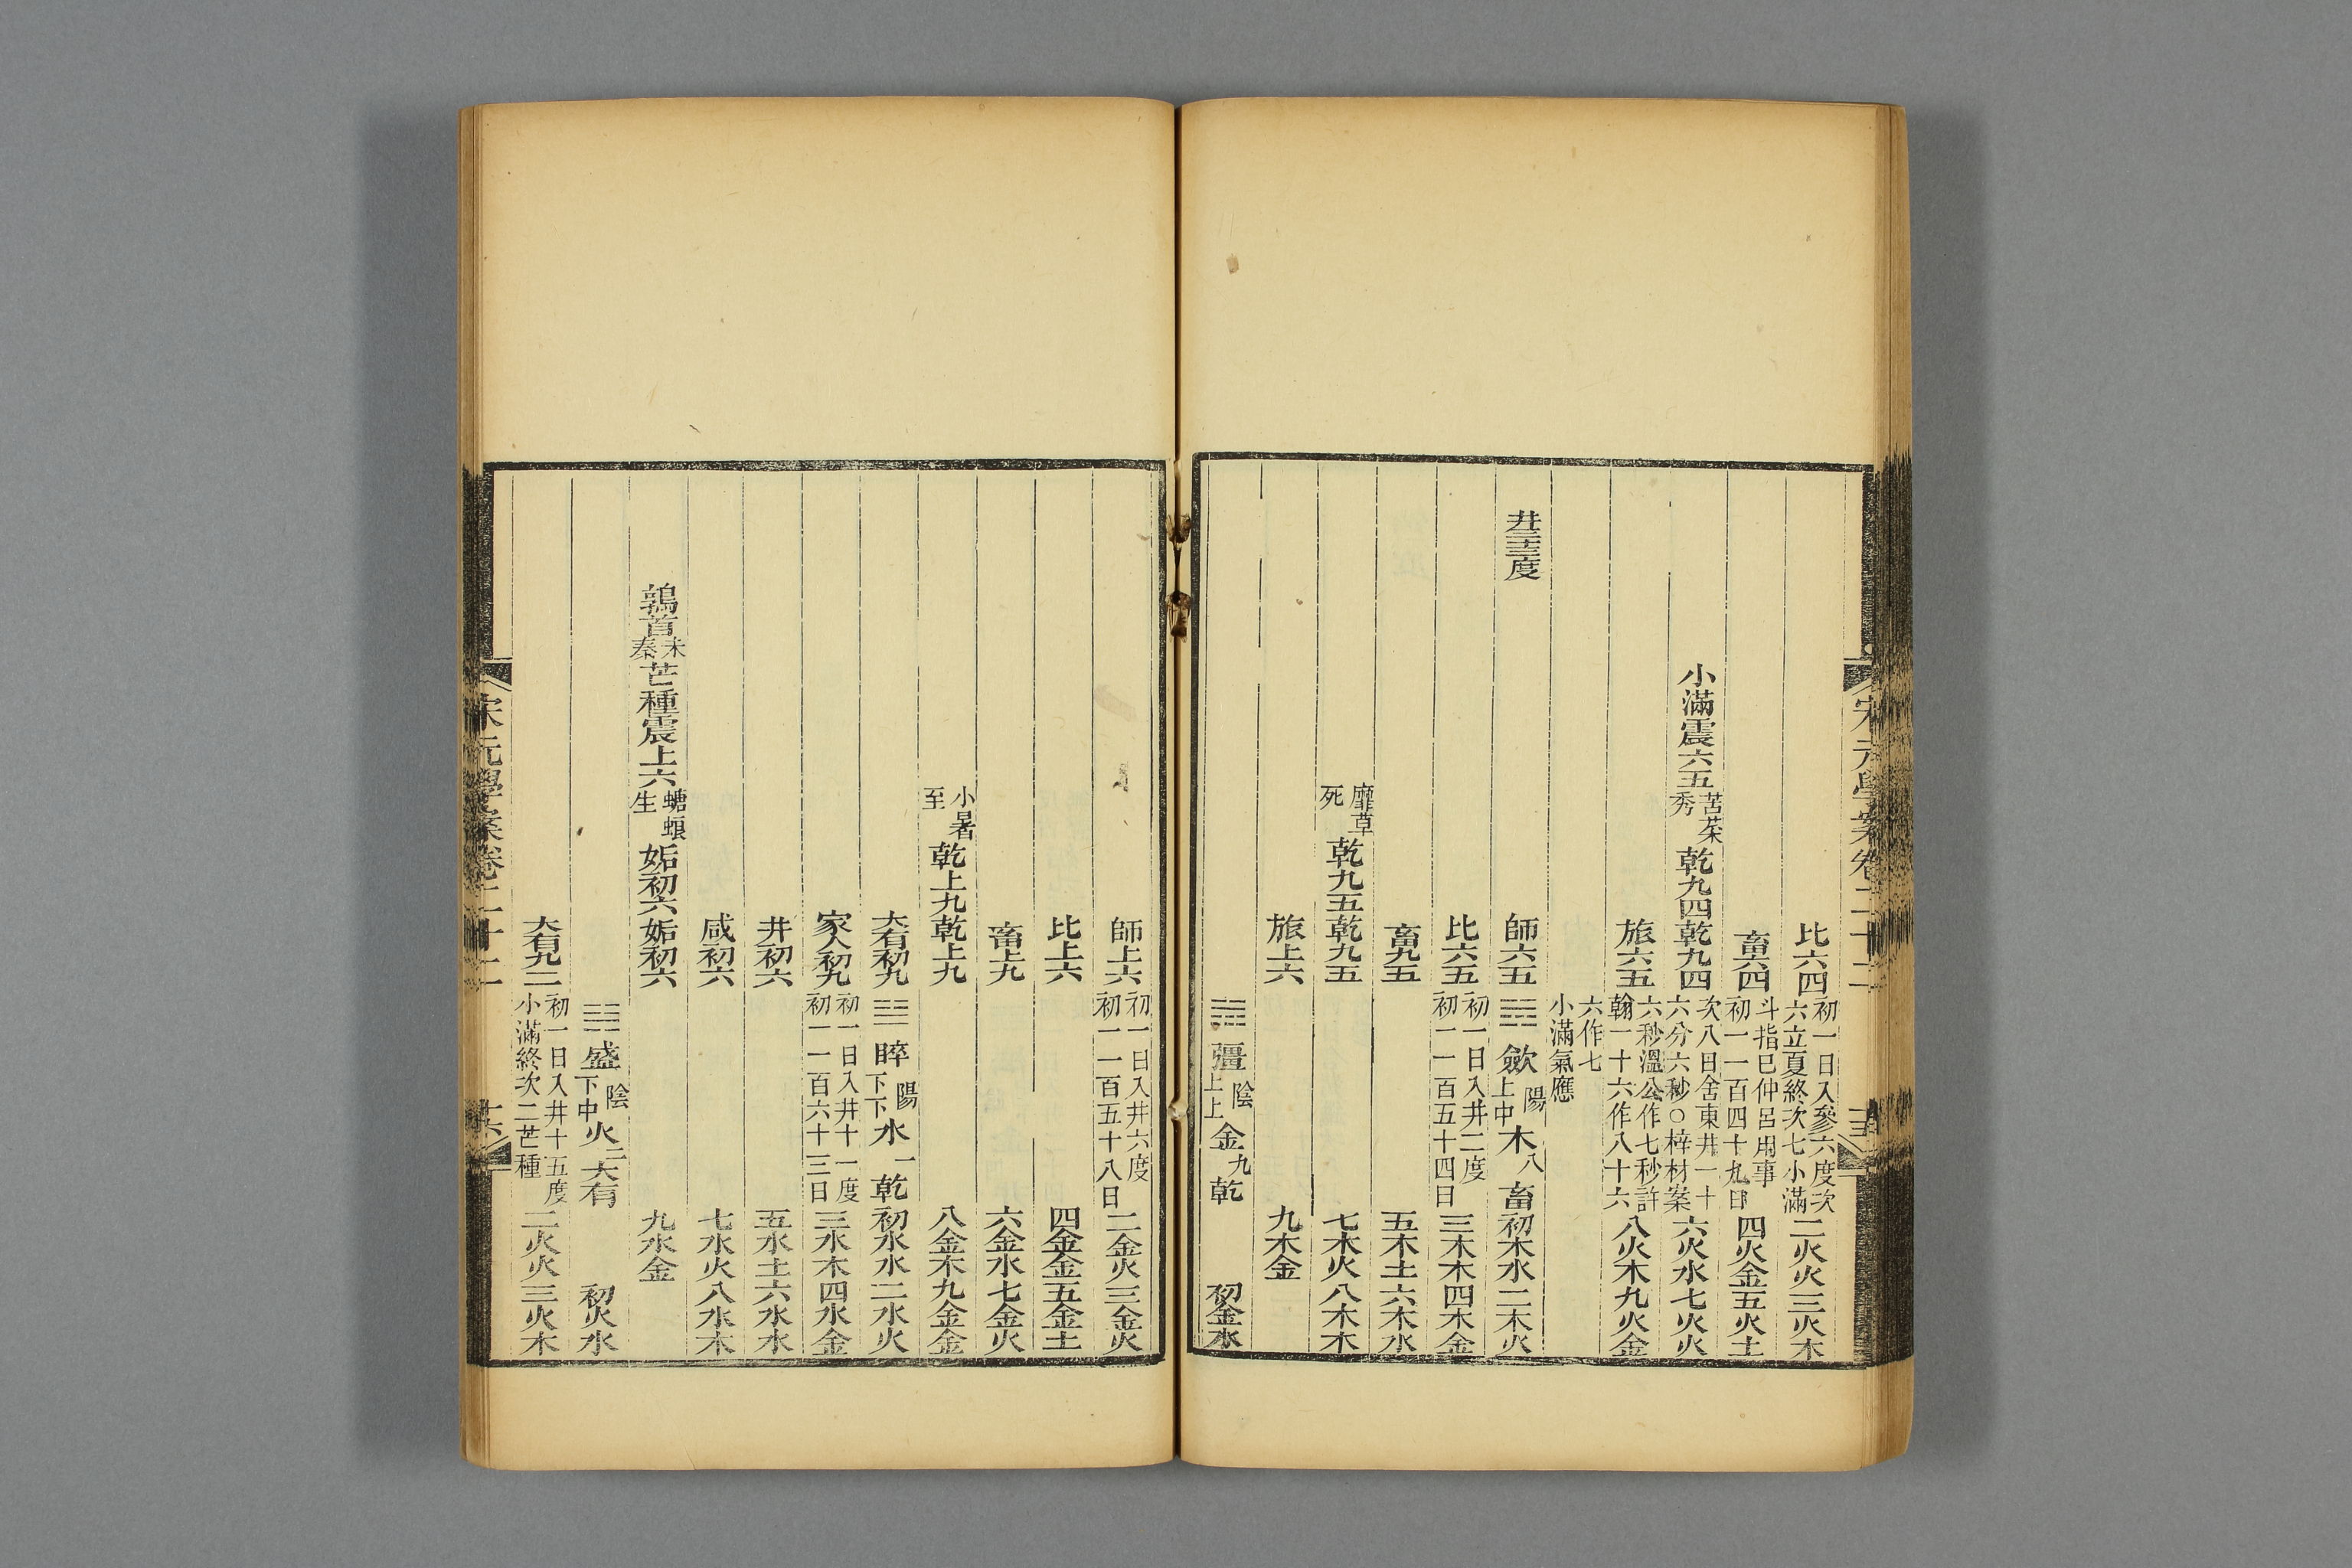 宋元學案卷二十二
比六四 初一日入參六度次六立夏終次七小滿 二火火三火木
畜六四 斗指巳仲呂用事初一一百四十九日 四火金五火土
小滿震六五 苦菜秀 乾九四乾九四 次八日舍東井一十六分六秒○梓材案 六火水七火火
旅六五 六秒溫公作七秒許翰一十六作八十六 八火木九火金
六作七小滿氣應
井三十三度 師六五 ䷠ 斂 陽上中 木八 畜 初木水二木火
比六五 初一日入井二度初一一百五十四日 三木木四木金
畜九五 五木土六木水
靡草死 乾九五乾九五 七木火八木木
旅上六 九木金
彊 陰上上 金九 乾 初金水
師上六 初一日入井六度初一一百五十八日 二金火三金火
比上六 四金金五金土
畜上九 六金水七金火
小暑至 乾上九乾上九 八金木九金金
大有初九 睟 陽下下 水一 乾 初水水二水火
家人初九 初一日入井十一度初一一百六十三日 三水木四水金
井初六 五水土六水水
咸初六 七水火八水木
鶉首 未秦 芒種震上六 螗蜋生 姤初六姤初六 九水金
盛 陰下中 火二 大有 初火水
大有九二 初一日入井十五度小滿終次二芒種 二火火三火木
宋元學案卷二十二 十六